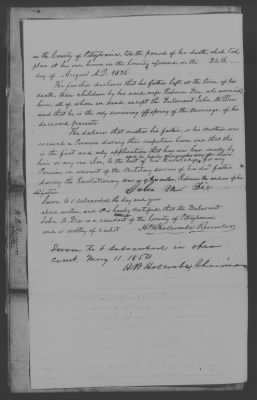 in the County of Pittsylvania, till the period of her death, which took
place at her own home in the County aforesaid on the 26th
day of August A.D. 1836.
He further declares that his father left, at the time of his
death, three children by his said wife Rebecca Dix who survived
him, all of whom are dead, except the Declarant John M. Dix
and that he is the only surviving offspring of the marriage of his
deceased parents.
He declares that neither his father, or his mother ever
received a Pension during their respective lives, and that this
is the first and only application that has ever been made by
him or any one else, to the best of his knowledge, for any
Pension, on account of the Military service of his father
during the Revolutionary War
John M Dix
Sworn to & subscribed the day and year
above written, and it is hereby certified that the Declarant
John M. Dix is a resident of the County of Pittsylvania
and is worthy of credit H W Holcombe
Sworn to & subscribed in open
Court, May 11 1854
H W Holcombe Chairman